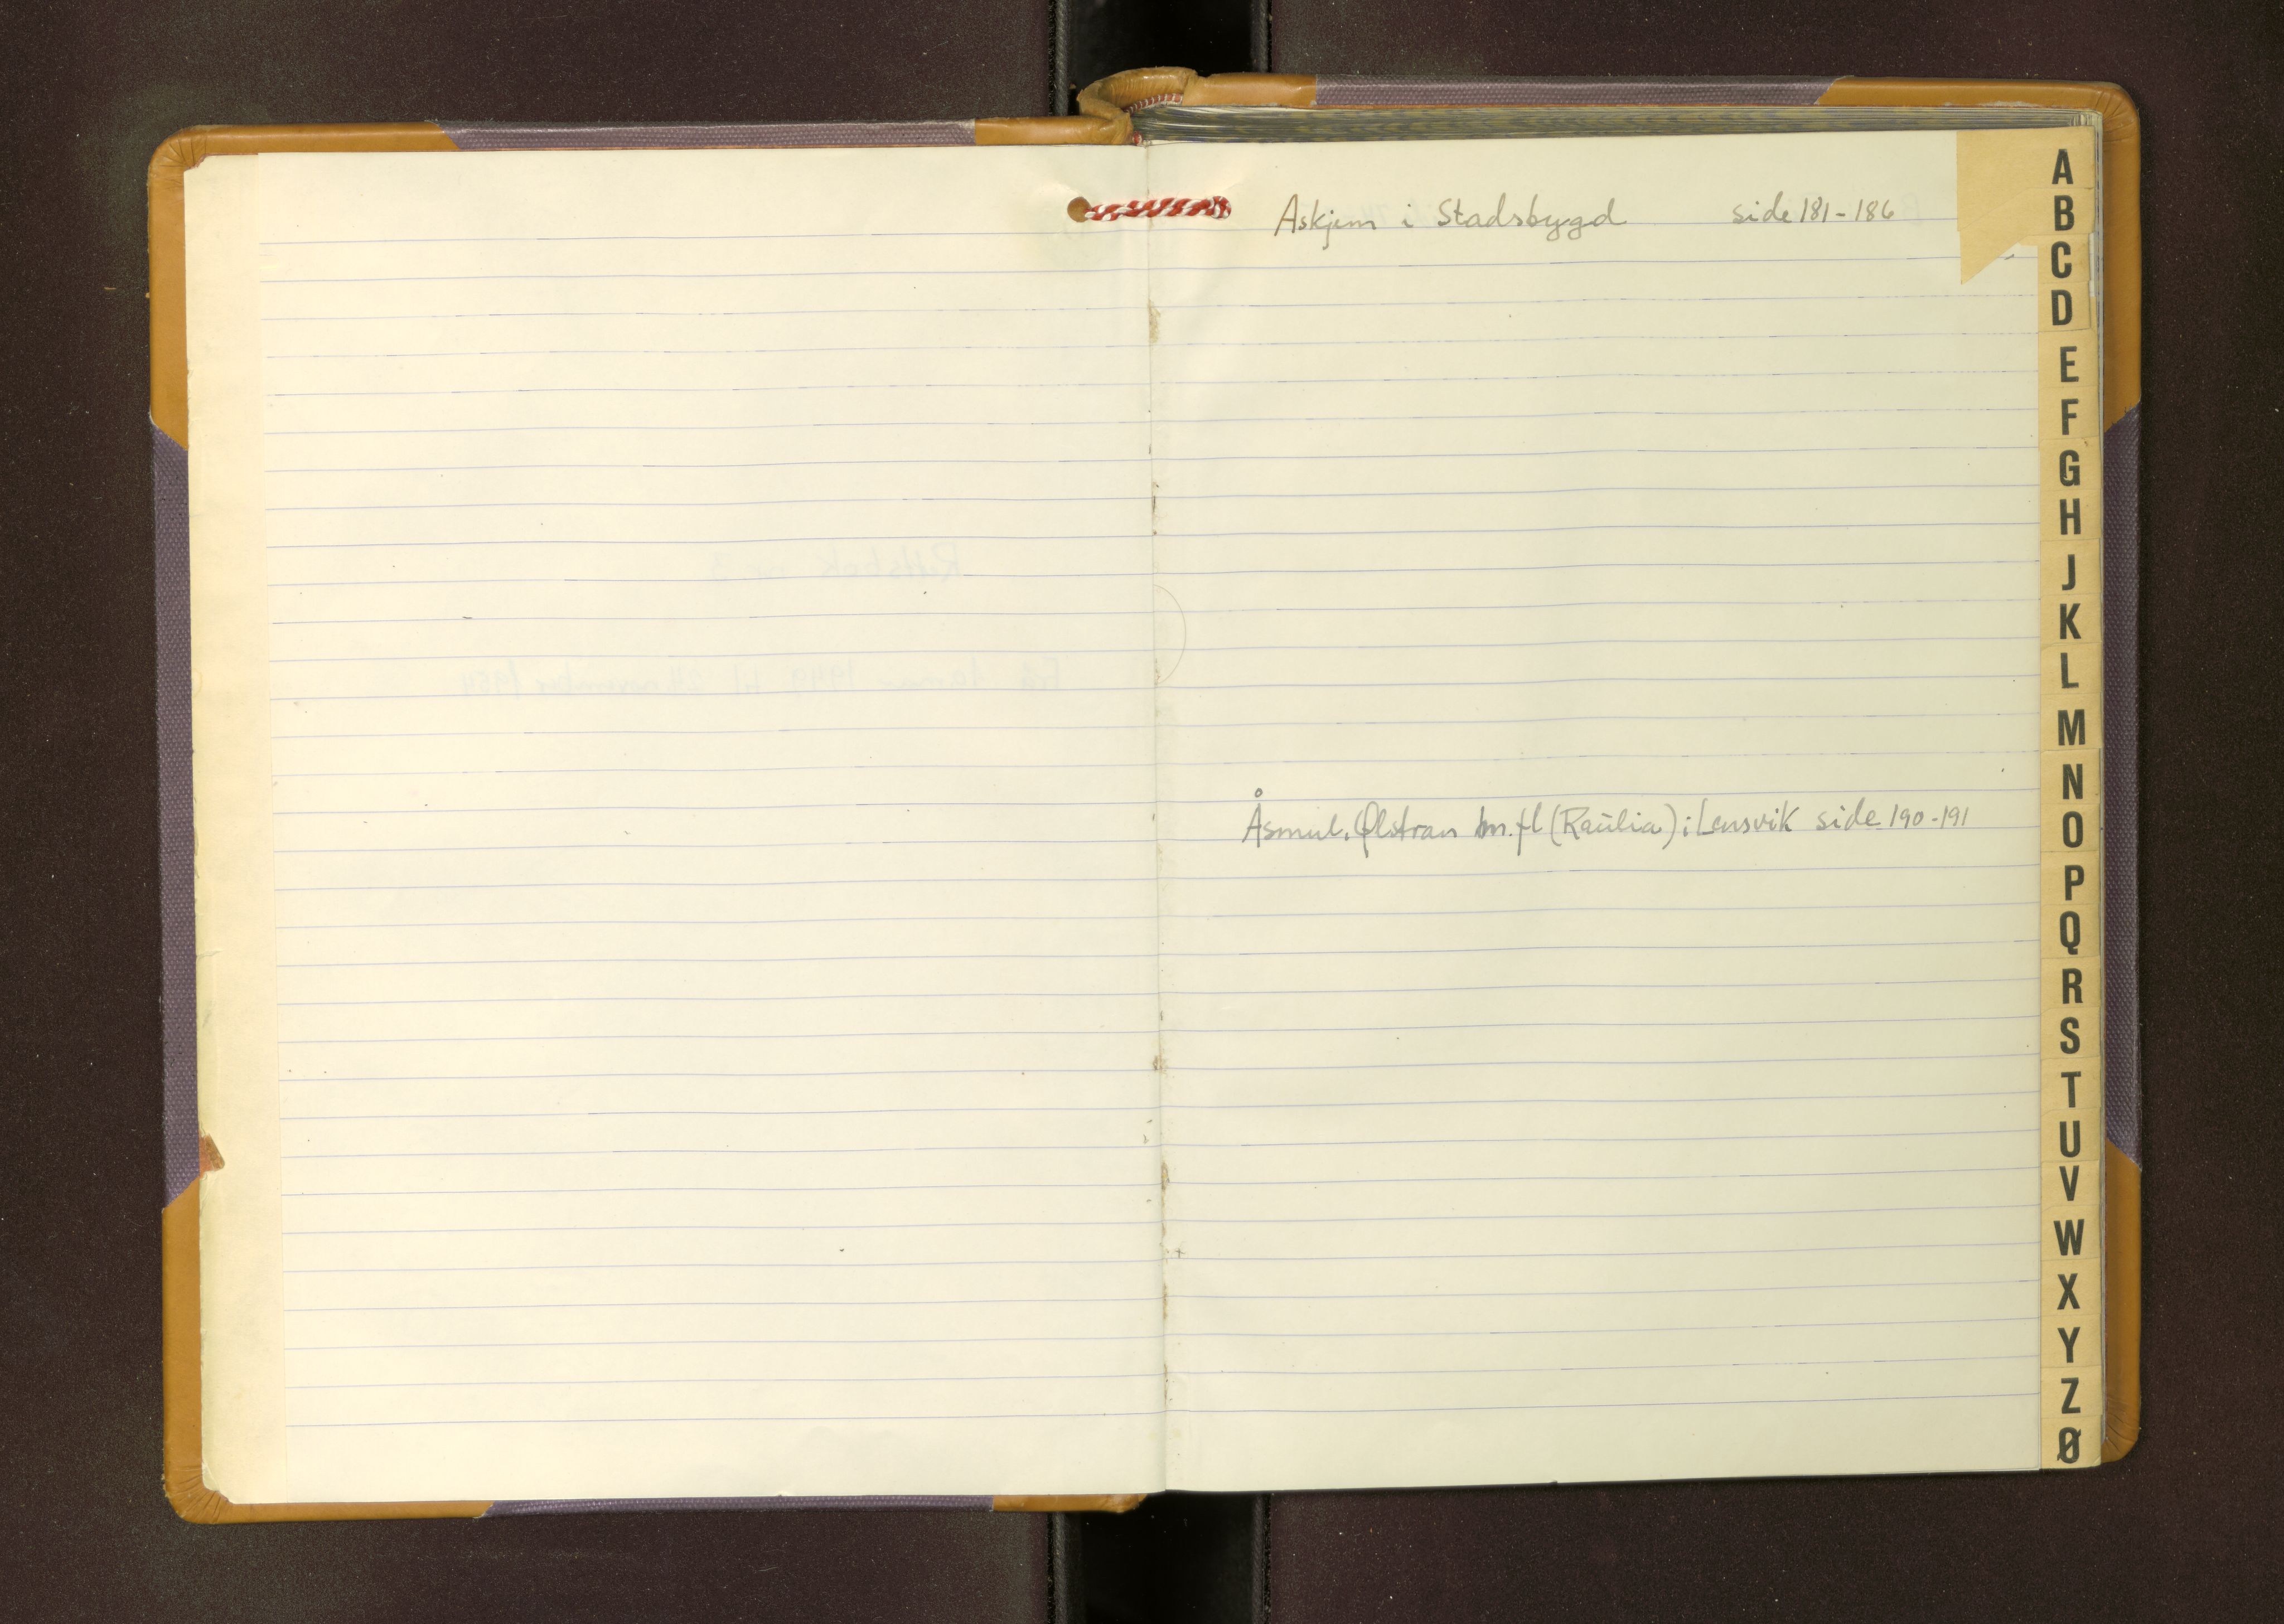 Askjem i Stadsbygd side 181-186
Åsmul. Ølstran bn. fl (Raulia) i Lensvik side 190-191
A
B
C
D
E
F
G
H
J
K
L
M
N
O
P
Q
R
S
T
U
V
W
X
Y
Z
Ø